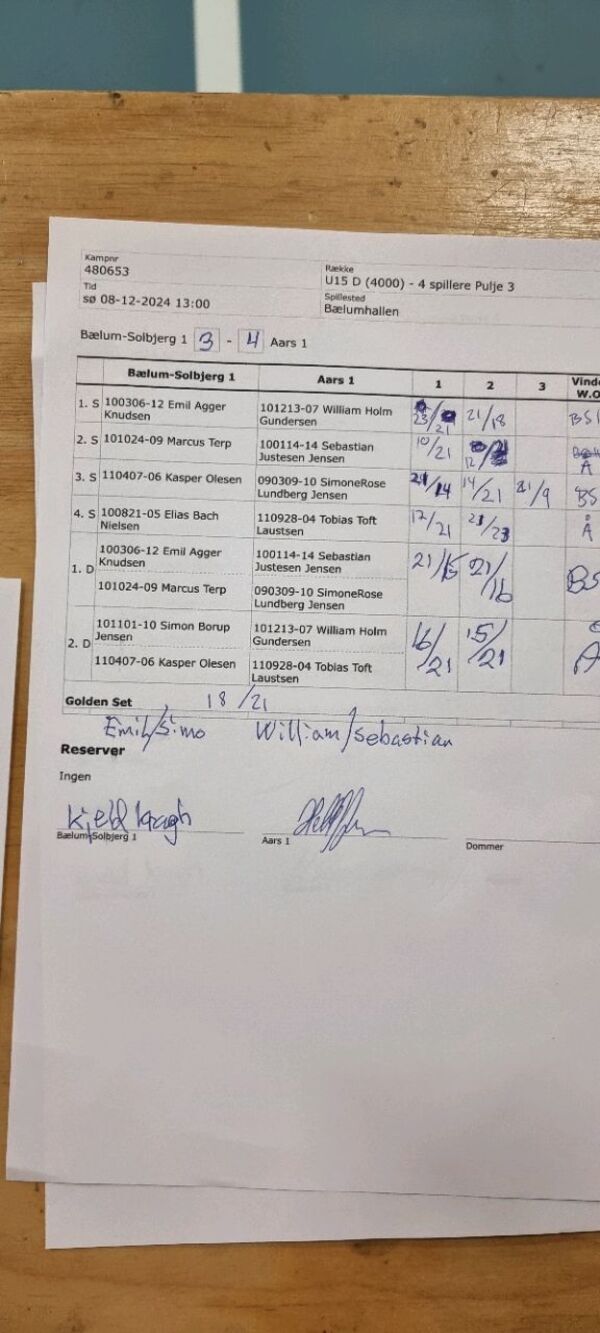 Kampnr
480653
Række
U15 D (4000) - 4 spillere Pulje 3
Tid
sø 08-12-2024 13:00
Spillested
Bælumhallen
Bælum-Solbjerg 1 3 - 4 Aars 1
Bælum-Solbjerg 1 Aars 1 1 2 3 Vind
W.O
1. S 100306-12 Emil Agger Knudsen 101213-07 William Holm Gundersen 23/21 21/18 BS
2. S 101024-09 Marcus Terp 100114-14 Sebastian Justesen Jensen 10/21 12/21 Å
3. S 110407-06 Kasper Olesen 090309-10 SimoneRose Lundberg Jensen 21/14 14/21 21/9 BS
4. S 100821-05 Elias Bach Nielsen 110928-04 Tobias Toft Laustsen 17/21 21/23 Å
1. D 100306-12 Emil Agger Knudsen 100114-14 Sebastian Justesen Jensen 21/15 21/16 BS
101024-09 Marcus Terp 090309-10 SimoneRose Lundberg Jensen
2. D 101101-10 Simon Borup Jensen 101213-07 William Holm Gundersen 16/21 15/21 Å
110407-06 Kasper Olesen 110928-04 Tobias Toft Laustsen
Golden Set 18/21
Emil/Simo William/Sebastian
Reserver
Ingen
Kjeld Kragh
Bælum-Solbjerg 1 Aars 1 Dommer